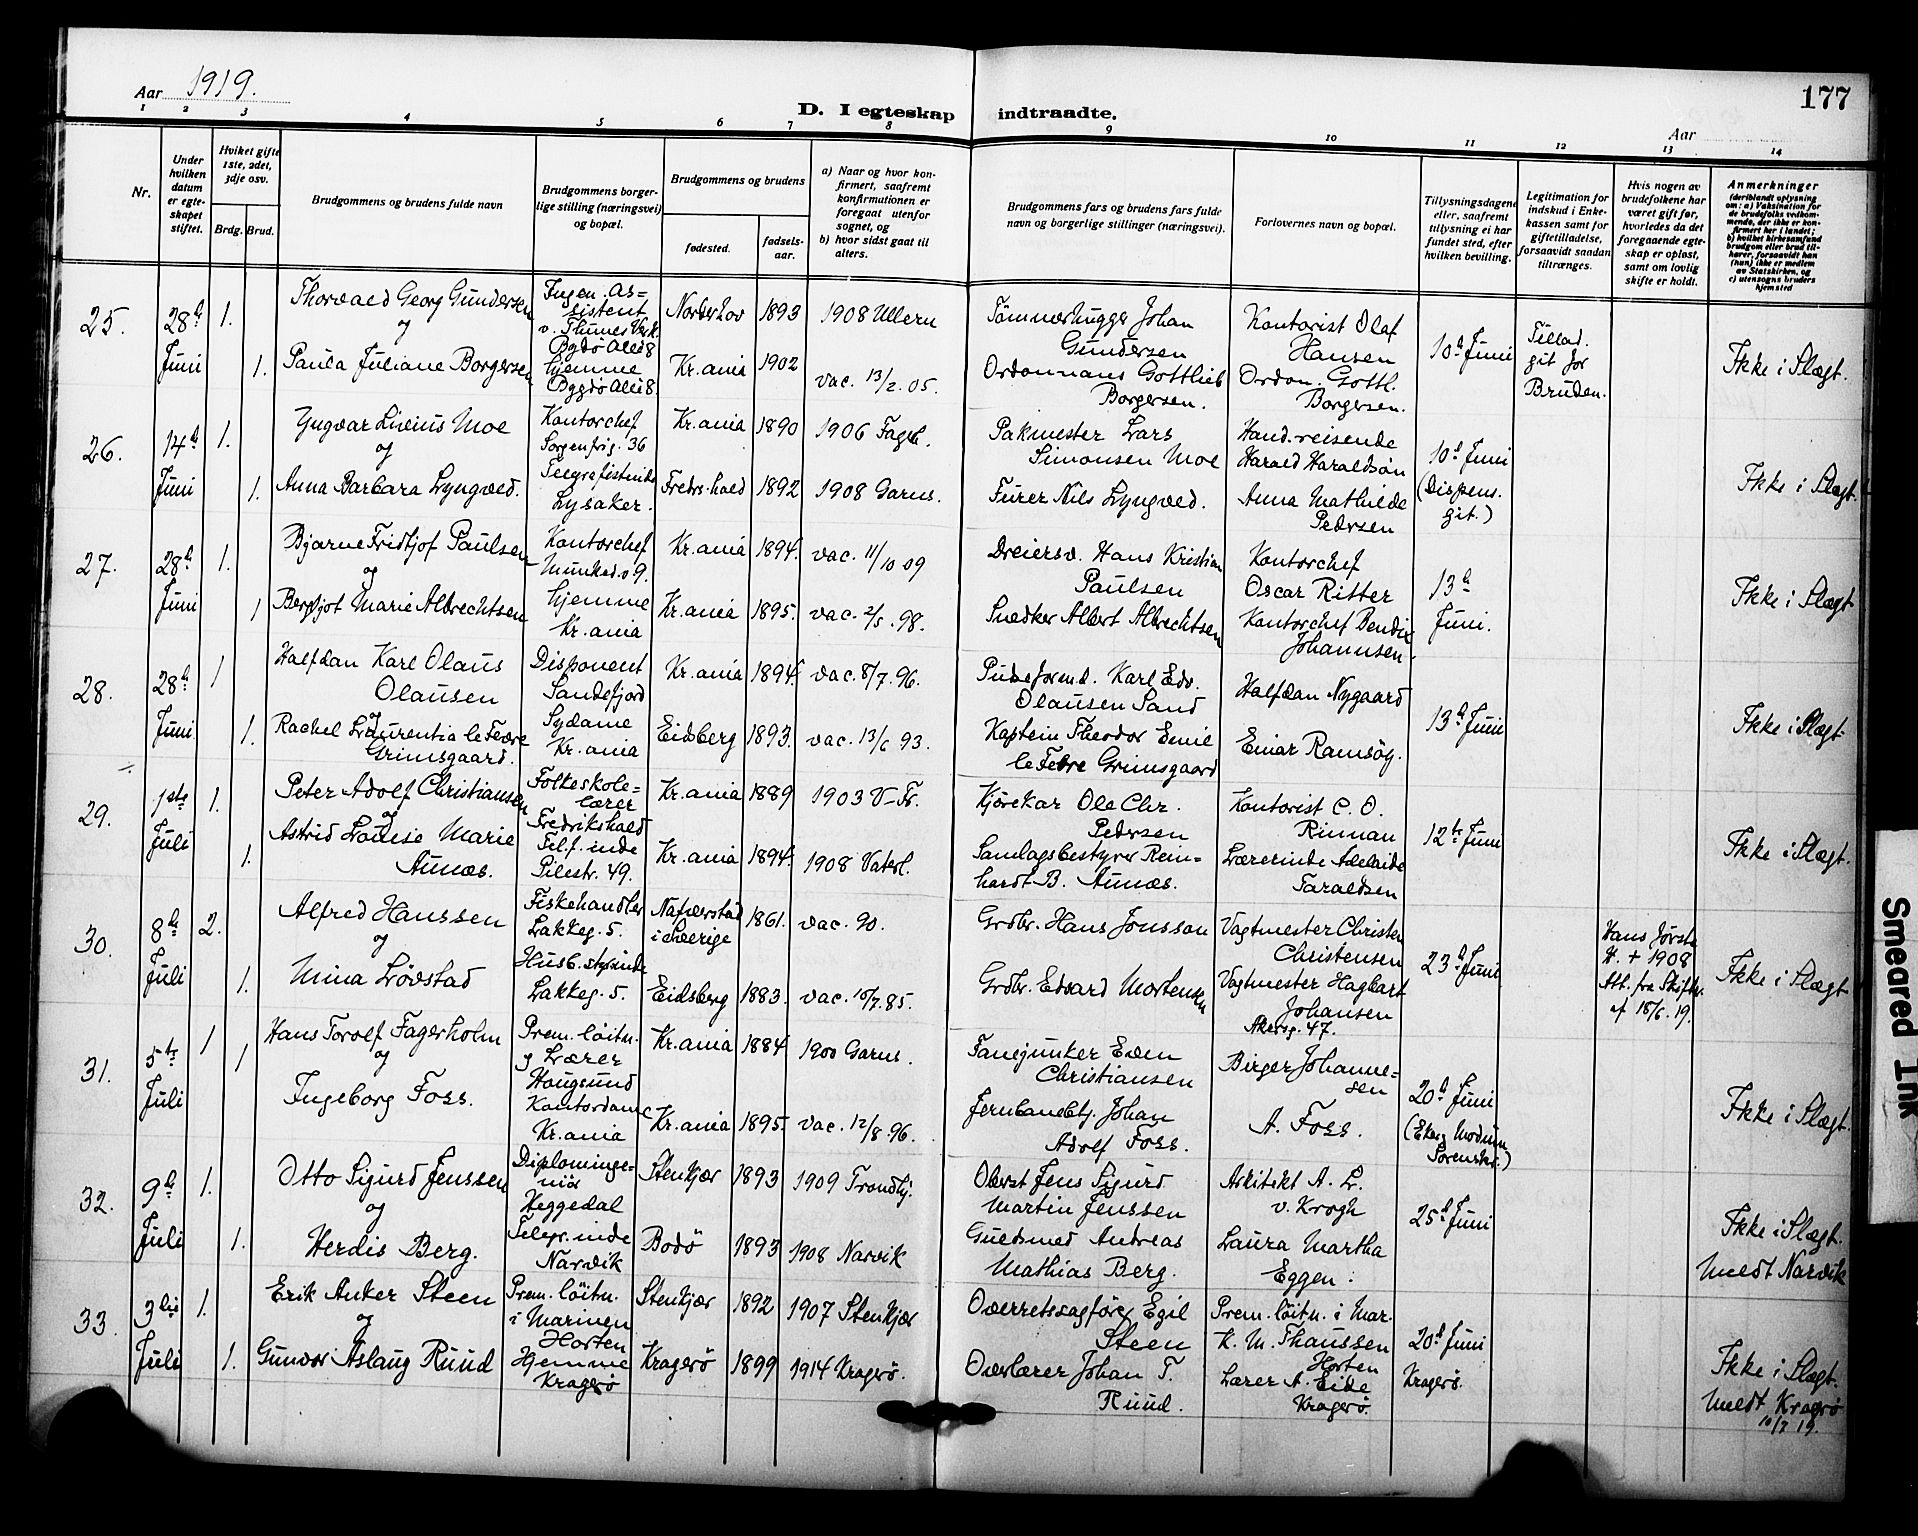 Aar 1919.
D. I egteskap indtraadte.
177
Aar
1 2 3 4 5 6 7 8 9 10 11 12 13 14
Nr.
Under hvilken datum er egteskapet stiftet.
Hvilket gifte 1ste, 2det, 3dje osv.
Brdg. Brud.
Brudgommens og brudens fulde navn
Brudgommens borgerlige stilling (næringsvei) og bopæl.
Brudgommens og brudens
fødested.
fødselsaar.
a) Naar og hvor konfirmert, saafremt konfirmationen er foregaat utenfor sognet, og
b) hvor sidst gaat til alters.
Brudgommens fars og brudens fars fulde navn og borgerlige stillinger (næringsvei).
Forlovernes navn og bopæl.
Tillysningsdagene eller, saafremt tillysning ei har fundet sted, efter hvilken bevilling.
Legitimation for indskud i Enkekassen samt for giftetilladelse, forsaavidt saadan tiltrænges.
Hvis nogen av brudefolkene har været gift før, hvorledes da det foregaaende egteskap er opløst, samt om lovlig skifte er holdt.
Anmerkninger
(deriblandt oplysning om: a) Vaksination for de brudefolks vedkommende, der ikke er konfirmert her i landet; b) hvilket kirkesamfund brudgom eller brud tilhører, forsaavidt han (hun) ikke er medlem av Statskirken, og c) utensogns bruders hjemsted
25. 28d Juni 1. Thorvald Georg Gundersen
og
Ingen. Assistent v. Thunes Vrk. Bygdö Allé 8
Norderhov 1893 1908 Ullern
Tömmerhugger Johan Gundersen
Kontorist Olaf Hansen
10d Juni
Tillad. git for Bruden.
Ikke i Slægt.
1. Paula Juliane Borgersen
hjemme Bygdö Allé 8.
Kr.ania 1902 vac. 13/2. 05.
Ordonnans Gottlieb Borgersen.
Ordon. Gottl. Borgersen.
26. 14d Juni 1. Yngvar Livius Moe
og
Kontorchef Sorgenfrig. 36
Kr.ania 1890 1906 Fagerb.
Pakmester Lars Simonsen Moe
Hand.reisende Harald Haraldsön
10d Juni (Dispens. git.)
Ikke i Slægt.
1. Anna Barbara Lyngved.
Telegrafistinde Lysaker.
Fredr.hald 1892 1908 Garns.
Furer Nils Lyngved.
Anna Mathilde Pedersen
27. 28d Juni 1. Bjarne Fridtjof Paulsen
og
Kontorchef Munked.v 9.
Kr.ania 1894. vac. 11/10 09
Dreiersv. Hans Kristian Paulsen
Kontorchef Oscar Ritter
13d Juni.
Ikke i Slægt
1 Bergljot Marie Albrechtsen
hjemme Kr.ania
Kr.ania 1895. vac. 2/5. 98.
Snedker Albert Albrechtsen
Kontorchef Bendix Johannsen.
28. 28d Juni 1 Halfdan Karl Olaus Olausen
og
Disponent Sandefjord
Kr.ania 1894. vac. 8/7. 96.
Karl Edv. Olausen Sand
Halfdan Nygaard
13d Juni
Ikke i Slægt.
1. Rachel Laurentia le Fevre Grimsgaard.
Sydame Kr.ania
Eidsberg 1893. vac. 13/6 93.
Kaptein Theodor Emil le Febre Grimsgaard
Einar Ramsög.
29. 1ste Juli 1. Peter Adolf Christiansen
og
Folkeskolelærer Fredrikshald
Kr.ania 1889 1903 V-Fr.
Kjörekar Ole Chr. Pedersen
Kontorist C. O. Rinnan
12te Juni
Ikke i Slægt.
1. Astrid Louise Marie Aunæs.
Telf.inde Pilestr. 49.
Kr.ania 1894. 1908 Vaterl.
Samlagsbestyrer Reinhardt B. Aunæs.
Lærerinde Adelaide Taraldsen
30. 8de Juli 2. Alfred Hanssen
og
Fiskehandler Lakkeg. 5.
Naverstad i Sverige 1861. vac. 90.
Grdbr. Hans Jonsson
Vagtmester Christen Christensen
23d Juni
H. + 1908
Att. fra Skifter. af 18/6. 19.
Ikke i Slægt
1. Mina Lövstad
Husb.styrinde Lakkeg. 5.
Eidsberg 1883. vac. 10/7. 85.
Grdbr. Edvard Mortensen
Vagtmester Hagbart Johansen Akersg. 47.
31. 5te Juli 1 Hans Torolf Fagerholm
og
Prem. löitn. og Lærer Hougsund
Kr.ania 1884 1900 Garns.
Fanejunker Eden Christiansen
Birger Johannesen
20d Juni (Eker, Modum, Sorenskr.)
Ikke i Slægt.
1 Ingeborg Foss.
Kontordame Kr.ania
Kr.ania 1895. vac. 12/8. 96.
Jernbanebtj. Johan Adolf Foss.
A. Foss.
32. 9de Juli 1. Otto Sigurd Jenssen
og
Diplomingeniör Heggedal
Stenkjær 1893 1909 Trondhj.
Oberst Jens Sigurd Martin Jenssen
Arkitekt A. L. v. Krogh
25d Juni
Ikke i Slægt.
Meldt Narvik
1. Herdis Berg.
Telegr.inde Narvik
Bodö 1893 1908 Narvik
Guldsmed Andreas Mathias Berg.
Laura Martha Eggen.
33. 3die Juli 1. Erik Anker Steen
og
Prem. löitn. i Marinen Horten
Stenkjær 1892 1907 Stenkjær
Overretssagförer Egil Steen
Prem. löitn. i Mar. K. M. Thaussen Horten
20d Juni Kragerö.
Ikke i Slægt.
Meldt Kragerö 10/7 19.
1. Gunvor Aslaug Ruud
Hjemme Kragerö
Kragerö 1899 1914 Kragerö.
Overlærer Johan T. Ruud.
Lærer A. Eide Kragerö.
Smeared Ink